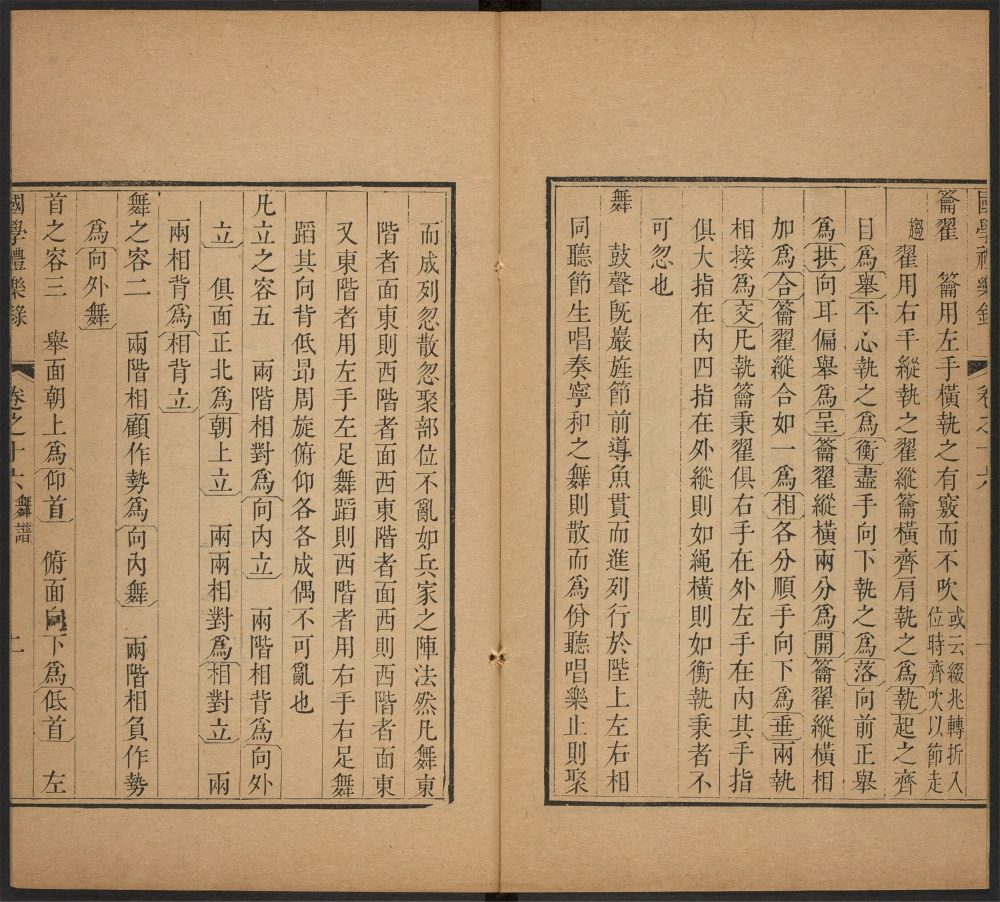 國學禮樂錄 卷之十六
籥翟 籥用左手橫執之有竅而不吹或云綴兆轉折入位時齊吹以節走
趨 翟用右手縱執之翟縱籥橫齊肩執之為執起之齊
目為舉平心執之為衡盡手向下執之為落向前正舉
為拱向耳偏舉為呈籥翟縱橫兩分為開籥翟縱橫相
加為合籥翟縱合如一為相各分順手向下為垂兩執
相接為交凡執籥秉翟俱右手在外左手在內其手指
俱大指在內四指在外縱則如繩橫則如衡執秉者不
可忽也
舞 鼓聲旣嚴旌節前導魚貫而進列行於陛上左右相
同聽節生唱奏寧和之舞則散而為佾聽唱樂止則聚
而成列忽散忽聚部位不亂如兵家之陣法然凡舞東
階者面東則西階者面西東階者面西則西階者面東
又東階者用左手左足舞蹈則西階者用右手右足舞
蹈其向背低昻周旋俯仰各各成偶不可亂也
凡立之容五 兩階相對為向內立 兩階相背為向外
立 俱面正北為朝上立 兩兩相對為相對立 兩
兩相背為相背立
舞之容二 兩階相顧作勢為向內舞 兩階相負作勢
為向外舞
首之容三 舉面朝上為仰首 俯面向下為低首 左
國學禮樂錄 卷之十六 舞譜